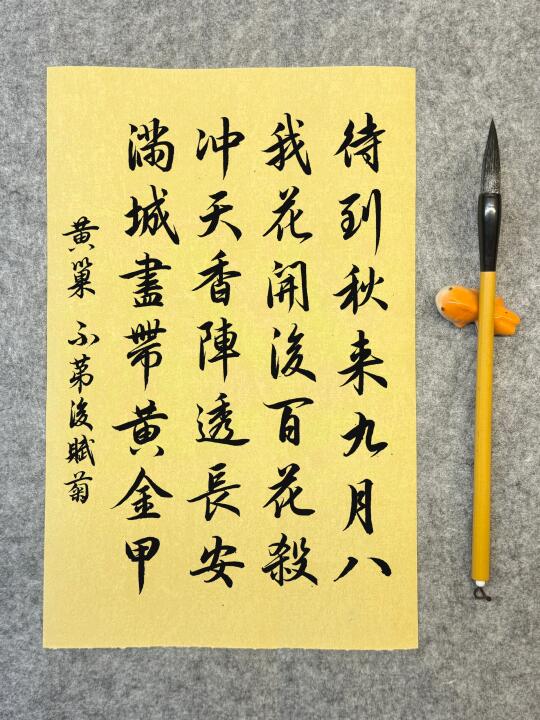 待到秋来九月八
我花開後百花殺
冲天香陣透長安
滿城盡帶黄金甲
黄巢 不第後賦菊